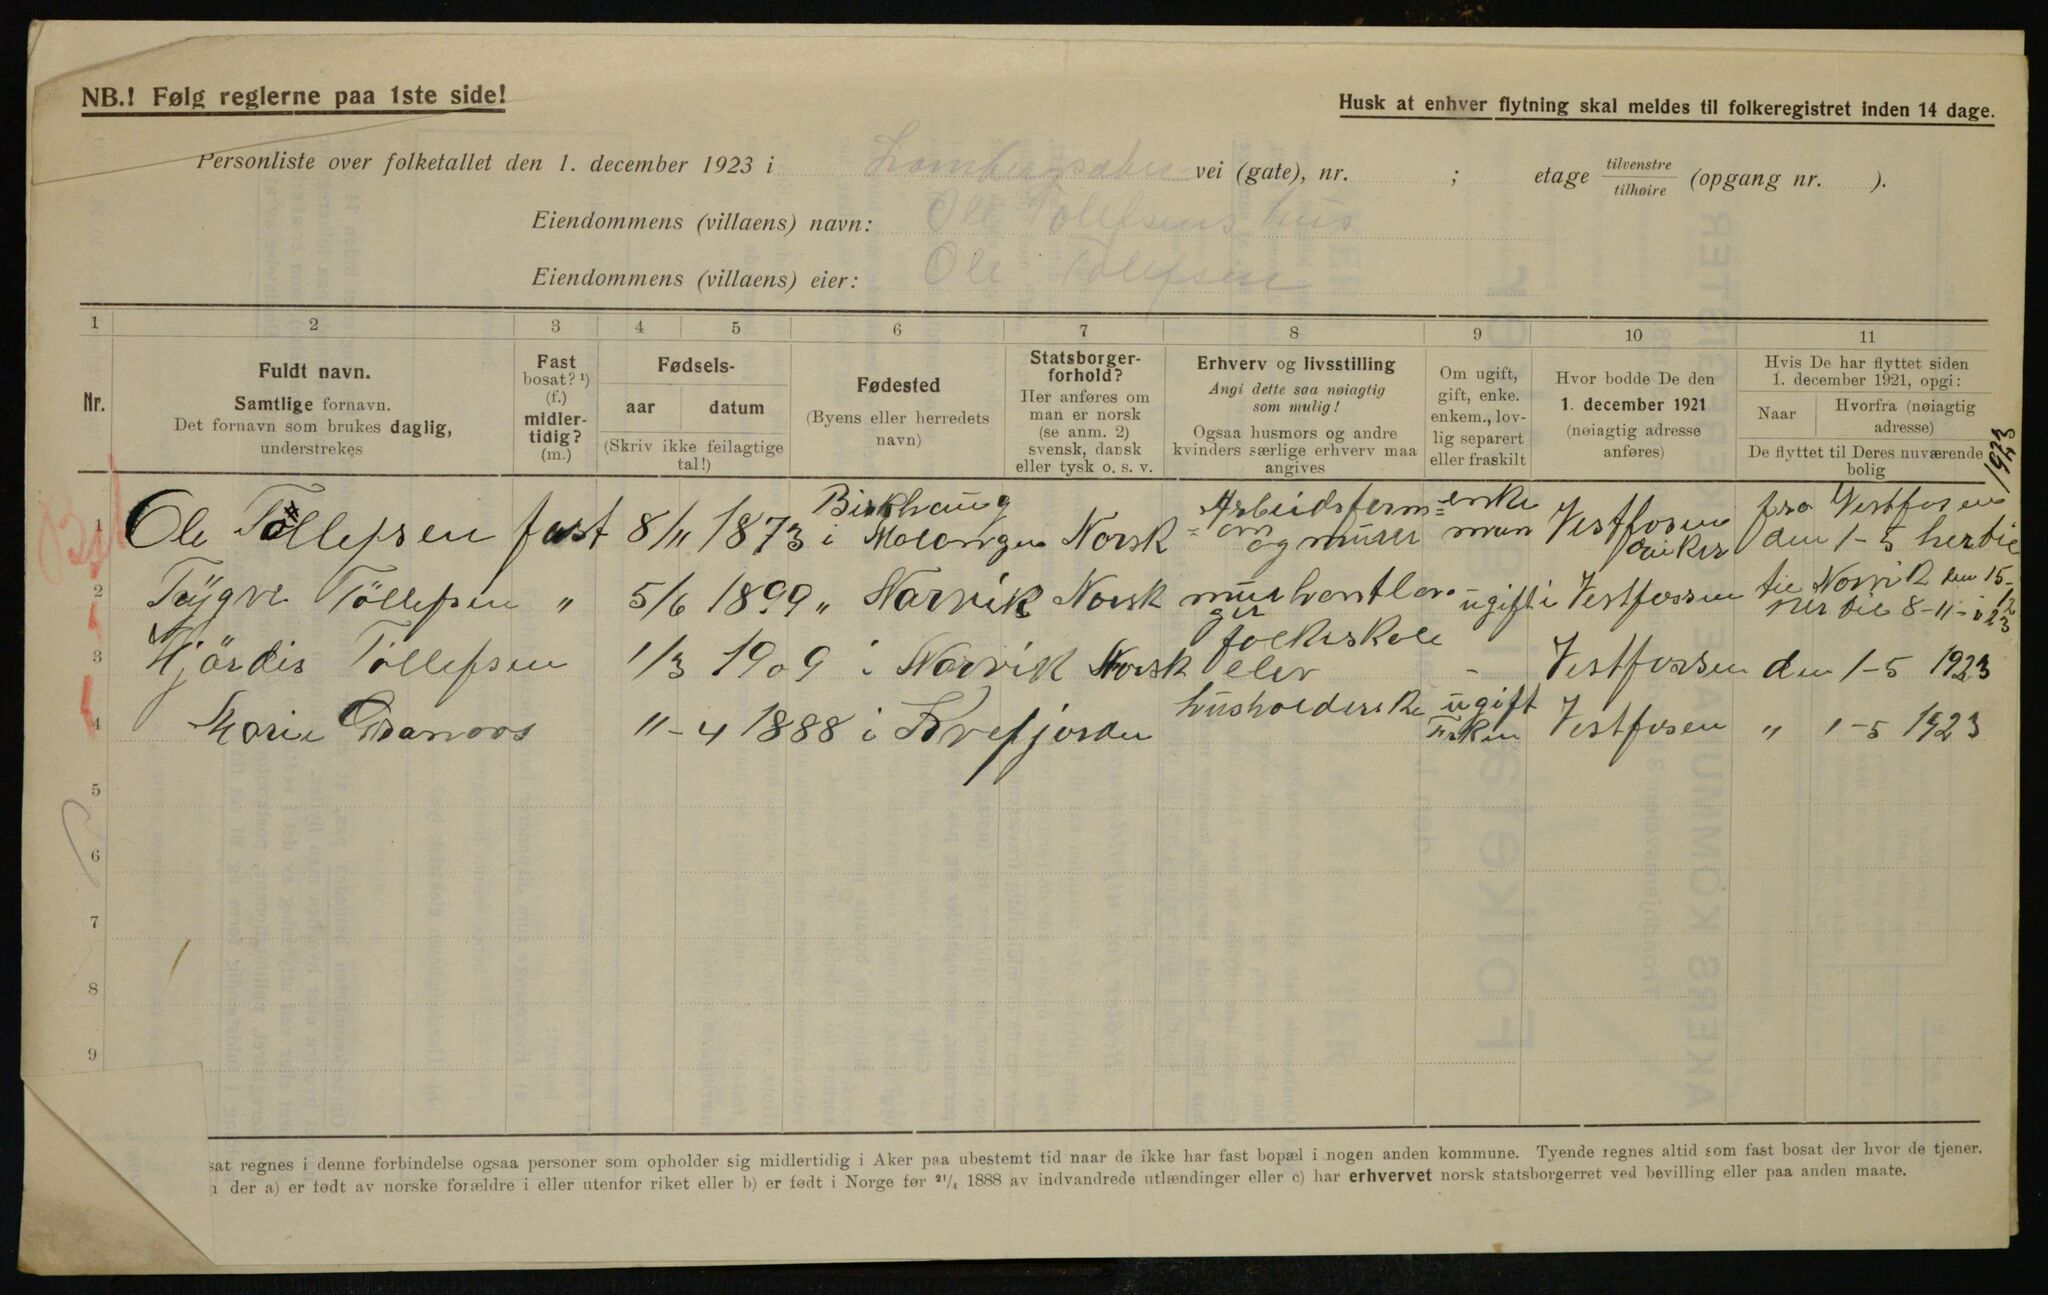 NB.! Følg reglerne paa 1ste side!
Husk at enhver flytning skal meldes til folkeregistret inden 14 dage.
Personliste over folketallet den 1. december 1923 i vei (gate), nr. ; etage tilvenstre tilhøire (opgang nr. ).
Eiendommens (villaens) navn: Ole Tolefsens hus
Eiendommens (villaens) eier: Ole Tolefsen
1 2 3 4 5 6 7 8 9 10 11
Nr.
Fuldt navn.
Samtlige fornavn.
Det fornavn som brukes daglig,
understrekes
Fast
bosat? ¹)
(f.)
midler-
tidig?
(m.)
Fødsels-
aar datum
(Skriv ikke feilagtige
tal!)
Fødested
(Byens eller herredets
navn)
Statsborger-
forhold?
Her anføres om
man er norsk
(se anm. 2)
svensk, dansk
eller tysk o. s. v.
Erhverv og livsstilling
Angi dette saa nøiagtig
som mulig!
Ogsaa husmors og andre
kvinders særlige erhverv maa
angives
Om ugift,
gift, enke.
enkem., lov-
lig separert
eller fraskilt
Hvor bodde De den
1. december 1921
(nøiagtig adresse
anføres)
Hvis De har flyttet siden
1. december 1921, opgi:
Naar Hvorfra (nøiagtig
adresse)
De flyttet til Deres nuværende
bolig
1923
1 Ole Tøllefsen fast 8/11 1873 i Malangen Norsk Arbeidsform= og murer enke= man Vestfossen fra Vestfosen den 1-5
2 Tygve Töllefsen " 5/6 1899 " Narvik Norsk ugift i Vestfossen Norvik den 15- 8-11-
3 Hjördis Töllefsen 1/3 1909 i Narvik Norsk folkeskole elev - Vestfossen den 1-5 1923
4 Marie 11-4 1888 i Kvefjorden husholderske ugift Vestfosen " 1-5 1923
5
6
7
8
9
sat regnes i denne forbindelse ogsaa personer som opholder sig midlertidig i Aker paa ubestemt tid naar de ikke har fast bopæl i nogen anden kommune. Tyende regnes altid som fast bosat der hvor de tjener.
der a) er født av norske forældre i eller utenfor riket eller b) er født i Norge før 21/4 1888 av indvandrede utlændinger eller c) har erhvervet norsk statsborgerret ved bevilling eller paa anden maate.